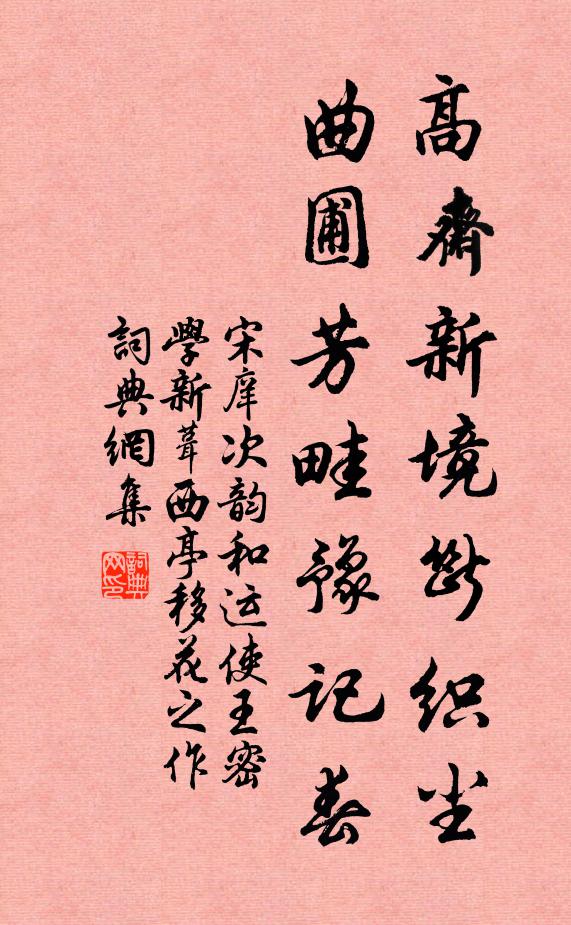 高齋新境断织尘
曲圃芳畦豫记春
宋庠次韵和运使王密
學新葺西亭移花之作
詞典網集
詞典网印